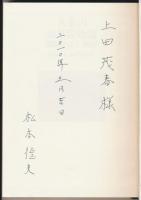 上田茂春様
二〇一〇年五月吉日
松本健夫